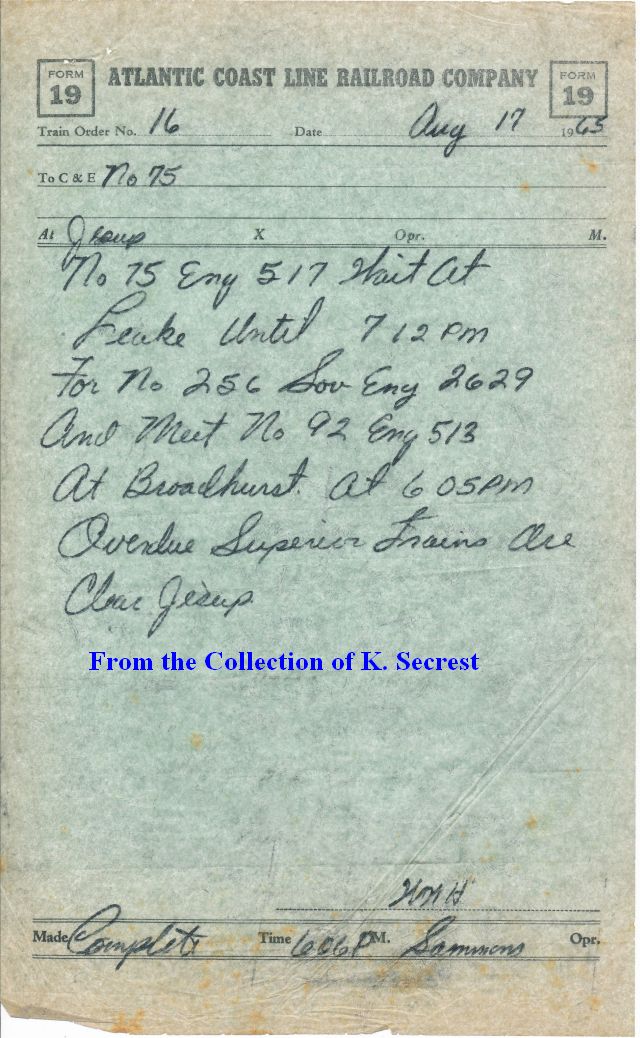 FORM 19 ATLANTIC COAST LINE RAILROAD COMPANY FORM 19
Train Order No. 16 Date Aug 17 1965
To C & E No 75
At Jesup X Opr. M.
No 75 Eng 517 Wait At
Leake Until 7 12 PM
For No 256 Sou Eng 2629
And Meet No 92 Eng 513
At Broadhurst. At 6 05PM
Overdue Superior Trains Are
Clear Jesup
From the Collection of K. Secrest
Made Complete Time 606 P M. Sammons Opr.